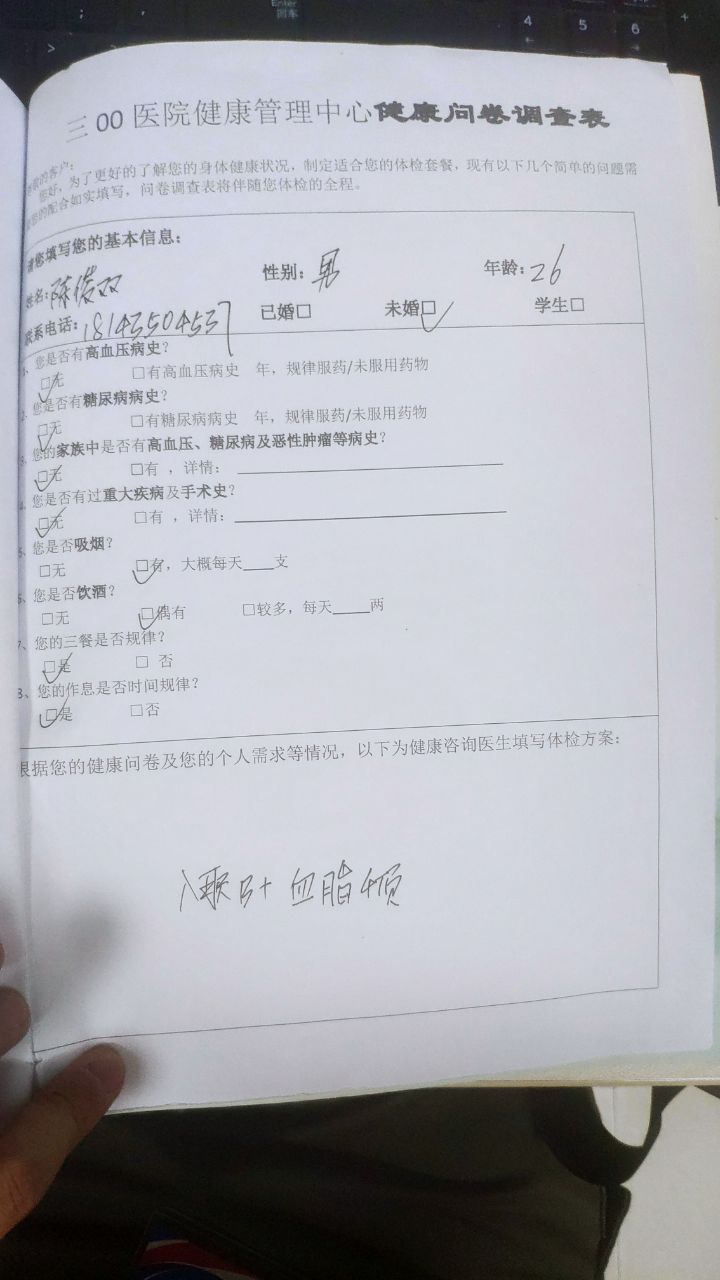 Enter
回车
4 5 6 +
三00医院健康管理中心健康问卷调查表
的客户:
您好,为了更好的了解您的身体健康状况,制定适合您的体检套餐,现有以下几个简单的问题需
您的配合如实填写,问卷调查表将伴随您体检的全程。
请您填写您的基本信息:
姓名: 性别:男 年龄:26
联系电话:18143504537 已婚□ 未婚□✓ 学生□
1、您是否有高血压病史?
☑无 □有高血压病史 年,规律服药/未服用药物
2、您是否有糖尿病病史?
☑无 □有糖尿病病史 年,规律服药/未服用药物
3、您的家族中是否有高血压、糖尿病及恶性肿瘤等病史?
☑无 □有 ,详情:
4、您是否有过重大疾病及手术史?
☑无 □有 ,详情:
5、您是否吸烟?
□无 ☑有,大概每天____支
6、您是否饮酒?
□无 ☑偶有 □较多,每天____两
7、您的三餐是否规律?
☑是 □ 否
8、您的作息是否时间规律?
☑是 □否
根据您的健康问卷及您的个人需求等情况,以下为健康咨询医生填写体检方案:
入职B+ 血脂4项